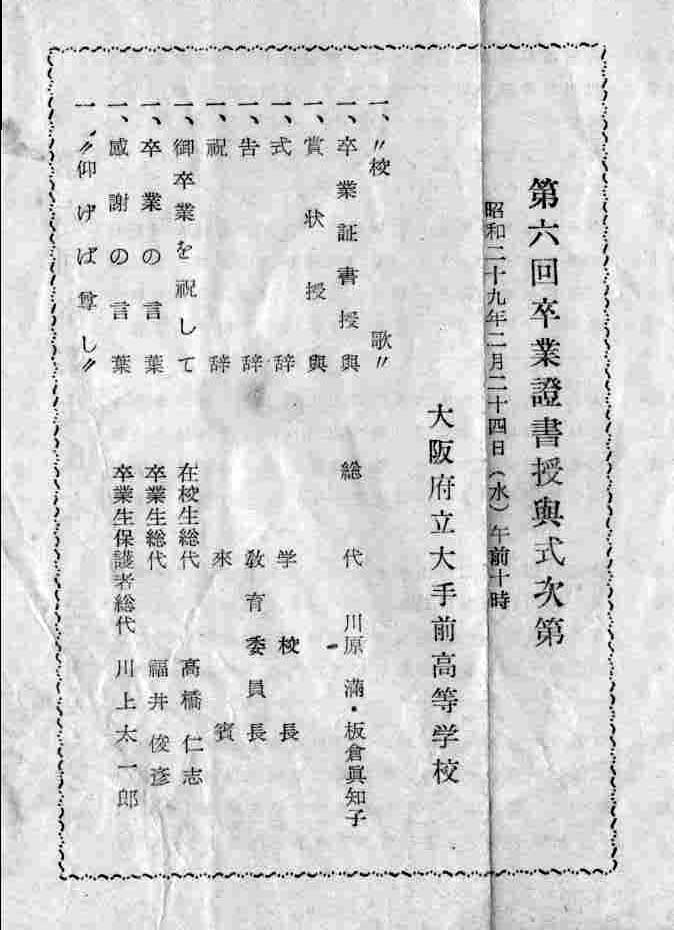 第六回卒業證書授與式次第
昭和二十九年二月二十四日（水）午前十時
大阪府立大手前高等学校
一、〃校歌〃
一、卒業証書授與 総代 川原満・板倉眞知子
一、賞状授與
一、式辞 学校長
一、告辞 教育委員長
一、祝辞 来賓
一、御卒業を祝して 在校生総代 高橋仁志
一、卒業の言葉 卒業生総代 福井俊彦
一、感謝の言葉 卒業生保護者総代 川上太一郎
一、〃仰げば尊し〃